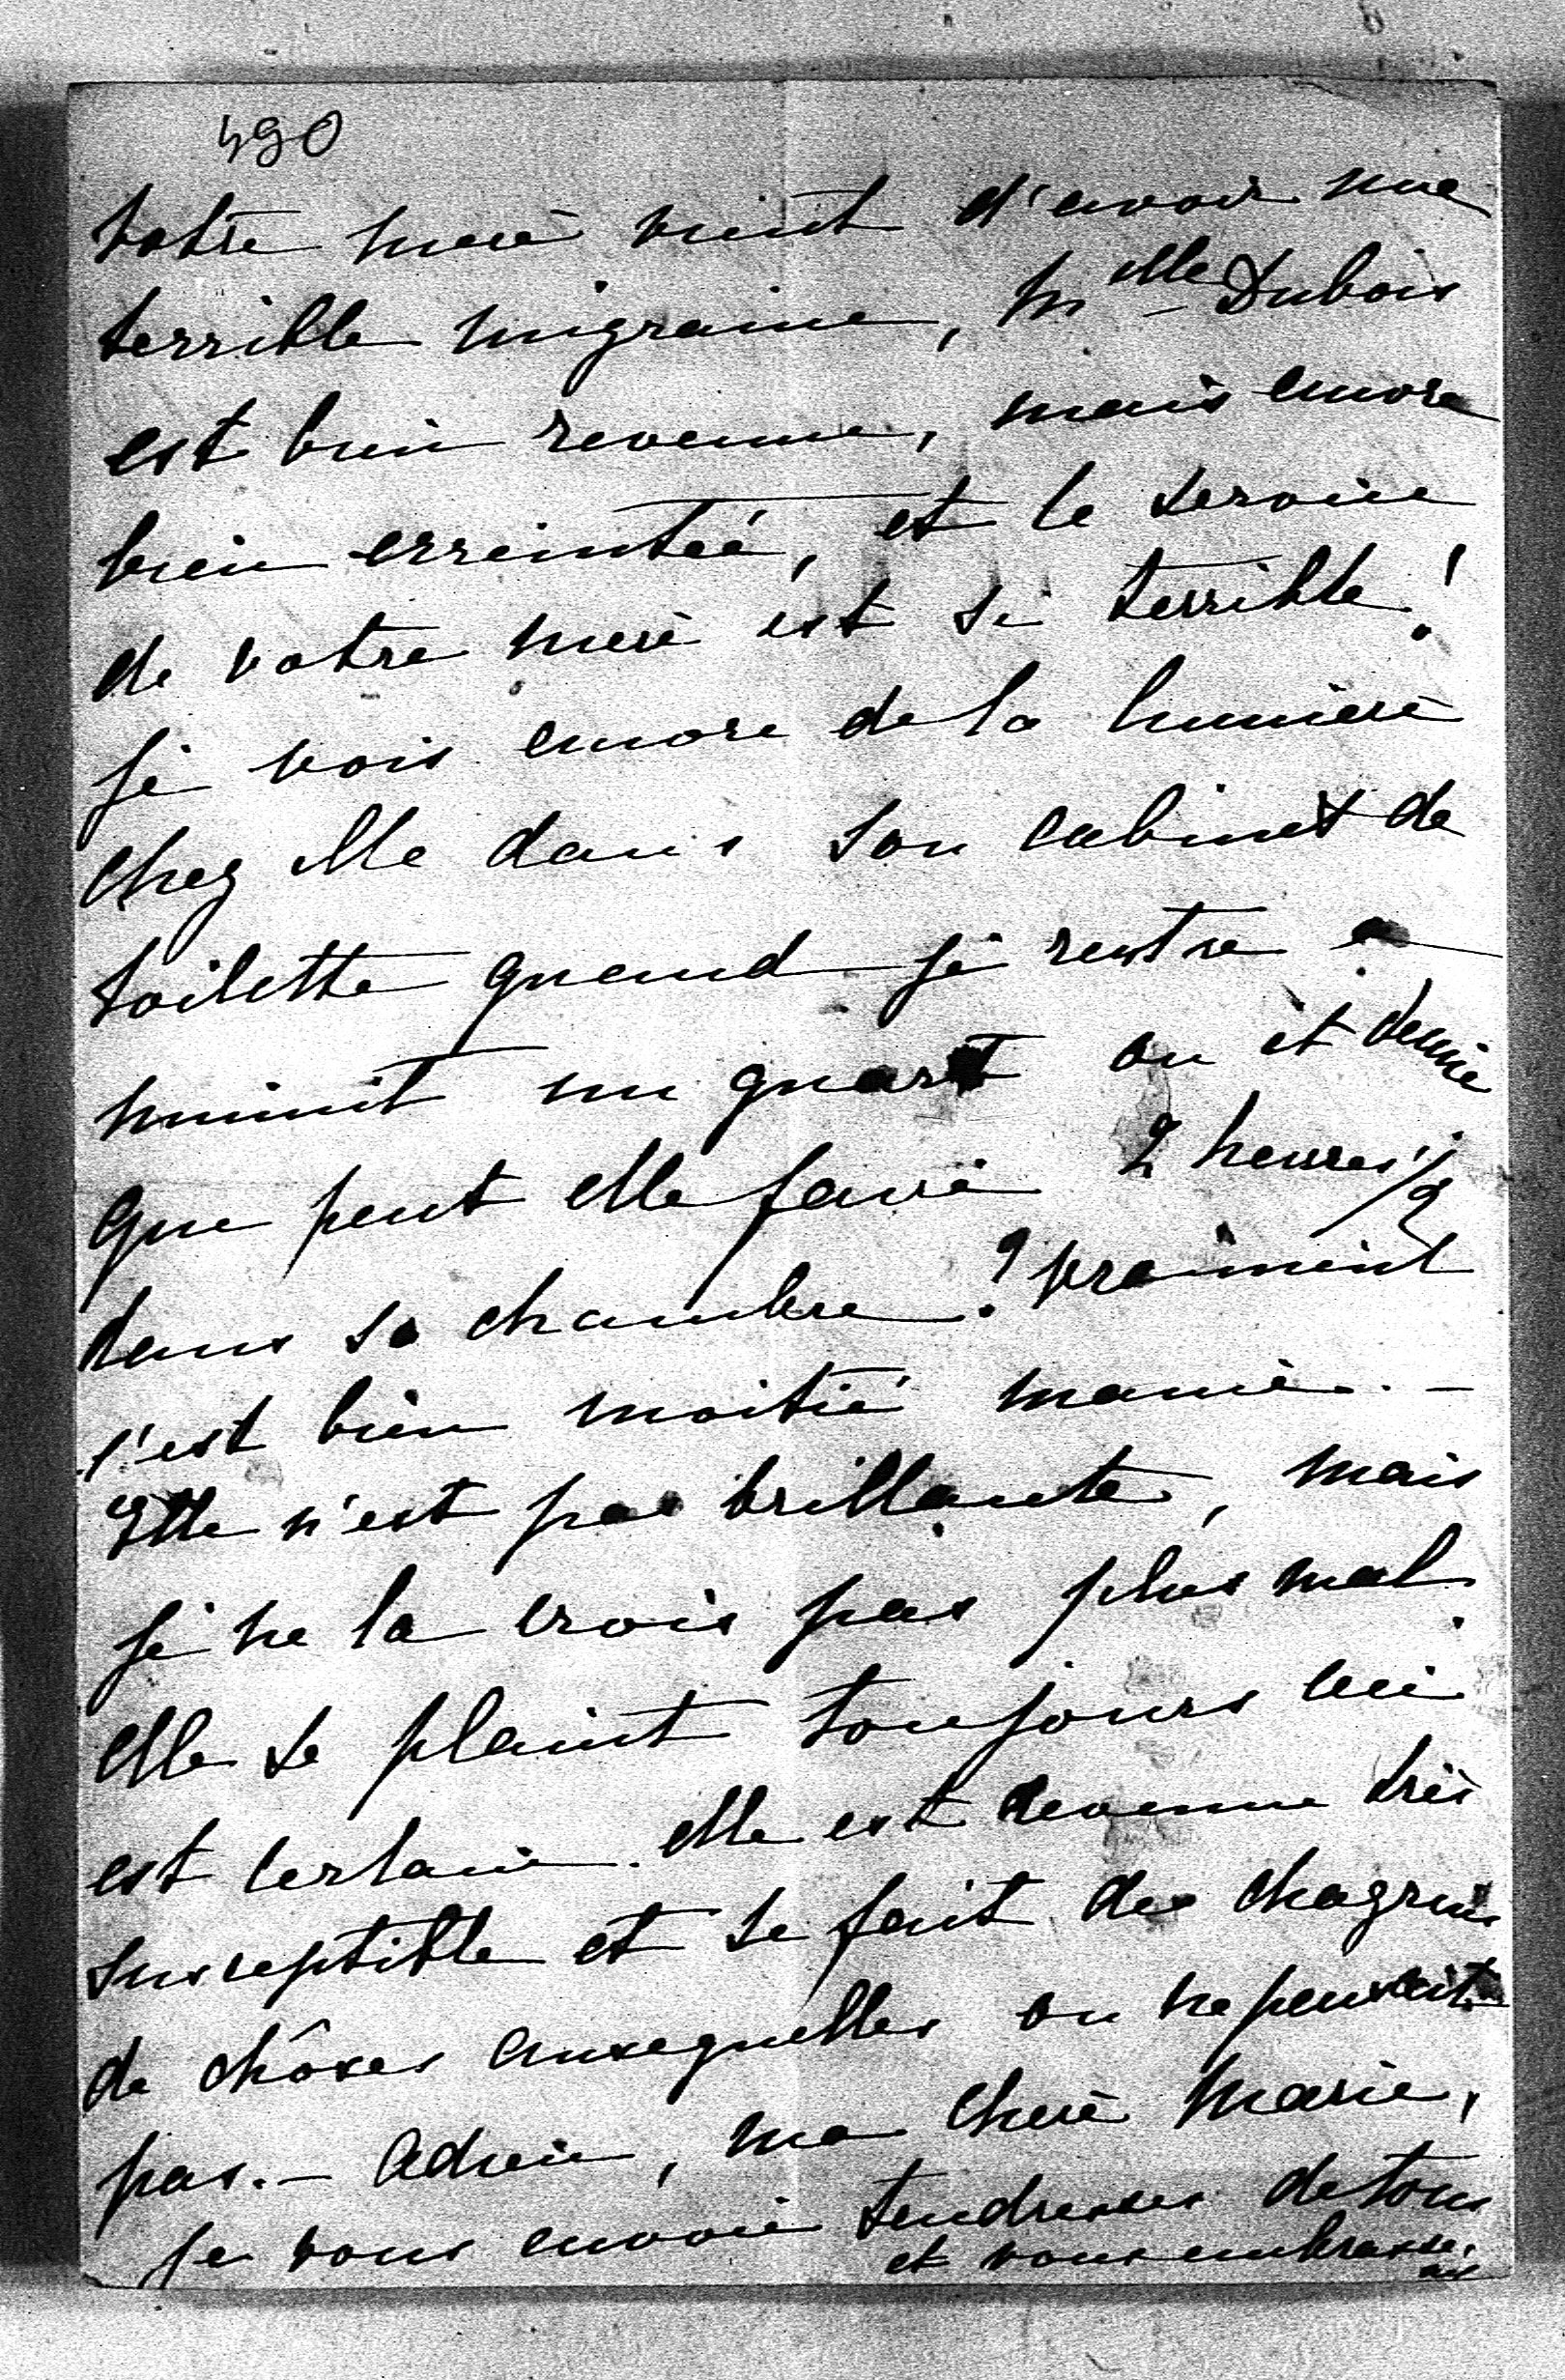 490
votre mère vient d'avoir une
terrible migraine, Melle Dubois
est bien revenue, mais encore
bien erreintée, et le service
de votre mère est si terrible!
je vois encore de la lumière
chez elle dans son cabinet de
toilette quand je rentre a
minuit un quart ou et demie
que peut elle faire 2 heures 1/2
dans sa chambre? vraiment
c'est bien moitié manie. -
Elle n'est pas brillante, mais
je ne la crois pas plus mal.
elle se plaint toujours ceci
est certain. elle est devenue très
susceptible et se fait des chagrins
de chôses auxquelles on ne pensait
pas. - Adieu, ma chère Marie,
je vous envoie tendresses de tous
et vous embrasse.